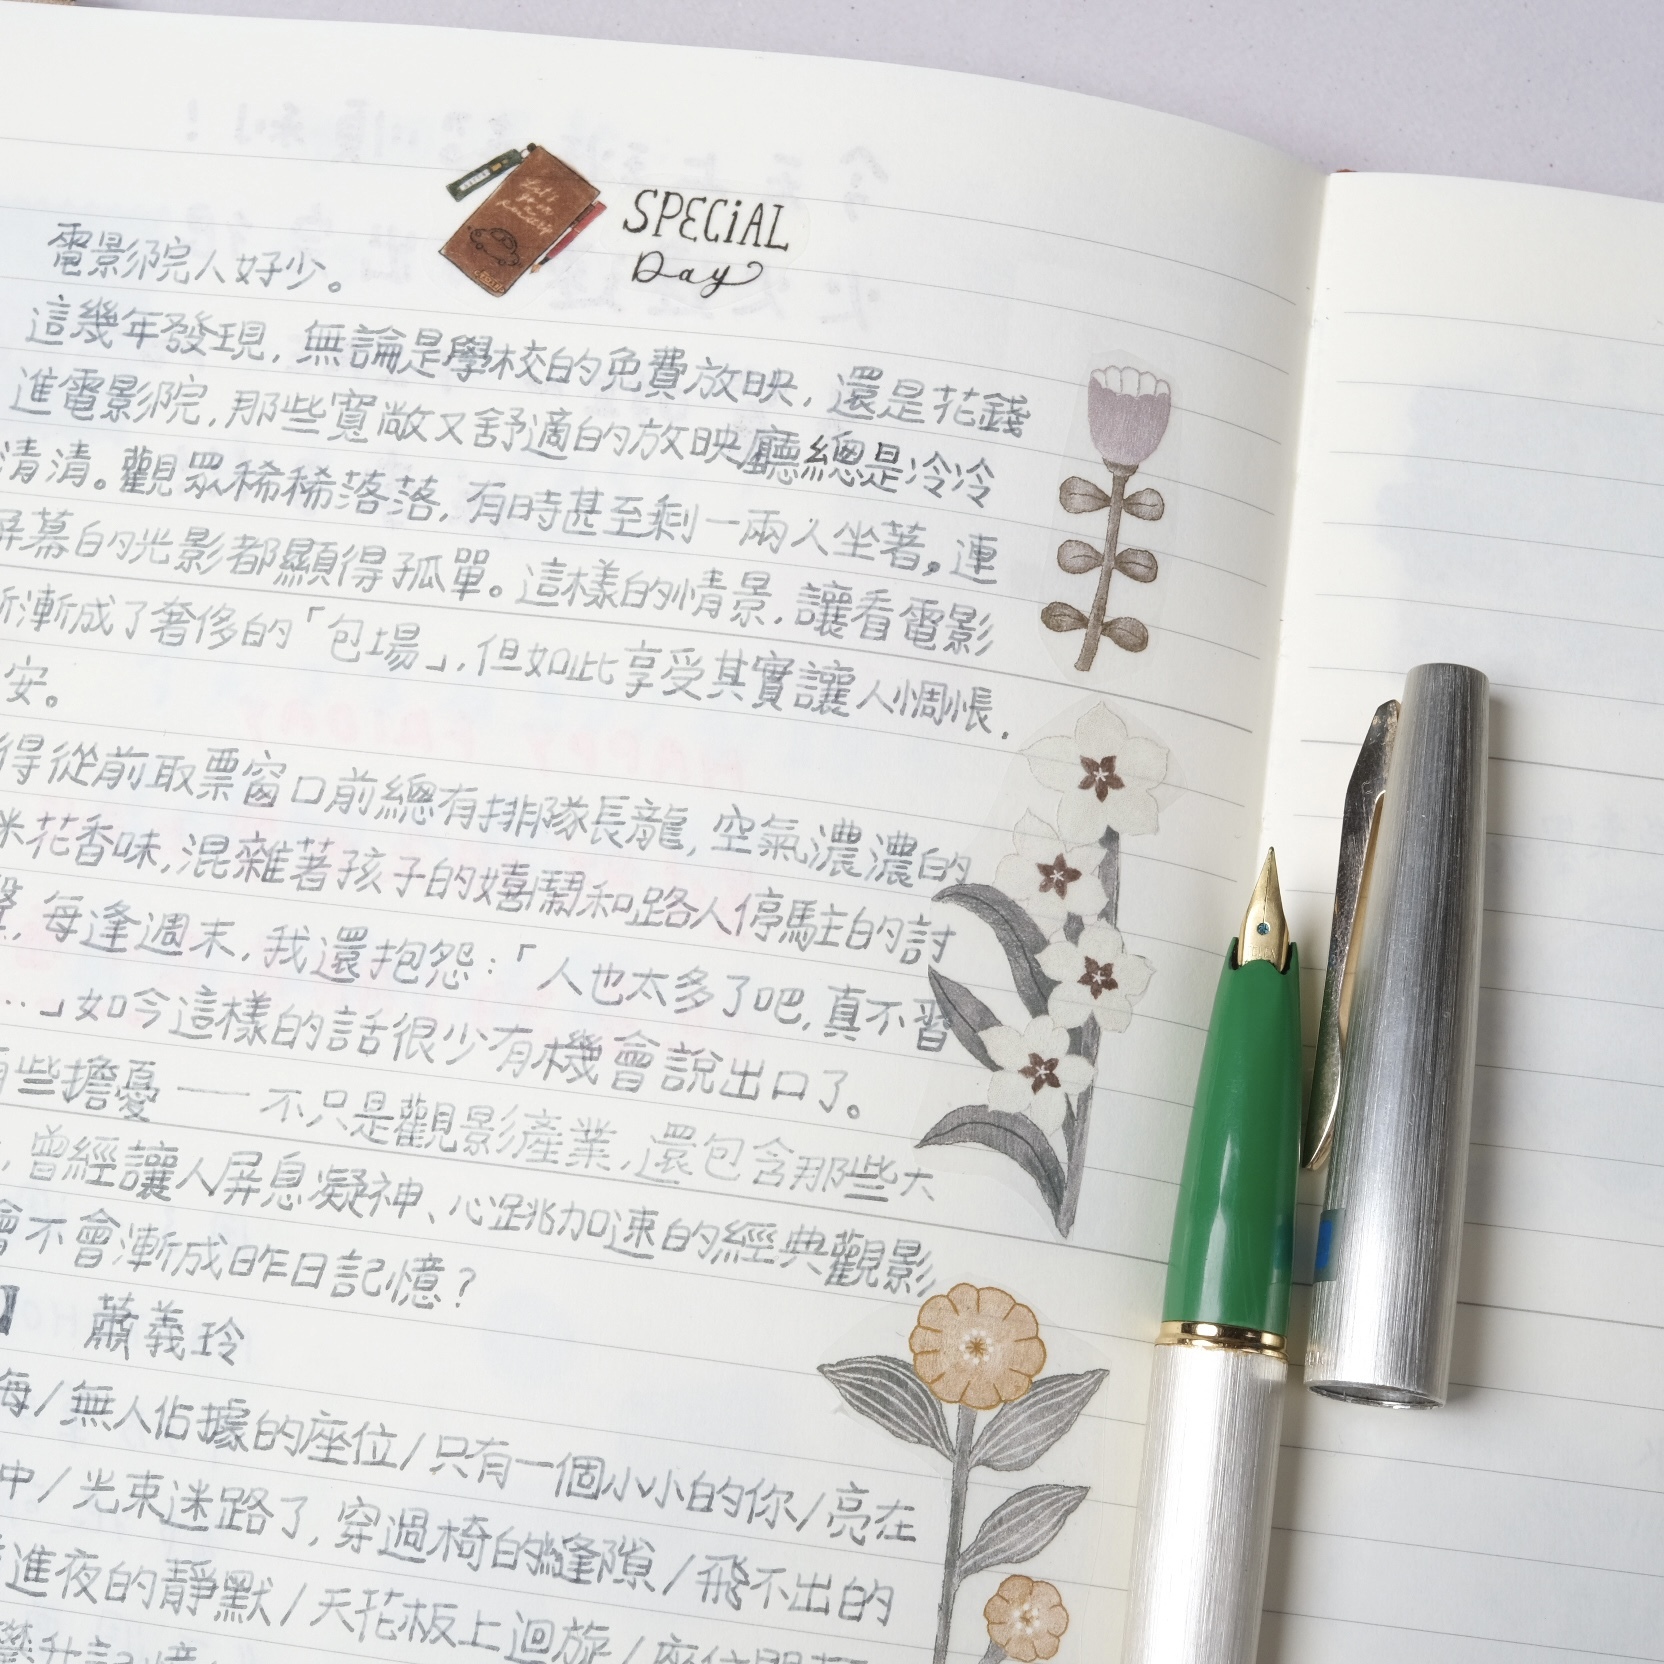 SPECiAL
Day
電影院人好少。
這幾年發現,無論是學校的免費放映,還是花錢
進電影院,那些寬敞又舒適的放映廳總是冷冷
清清。觀眾稀稀落落,有時甚至剩一兩人坐著。連
屏幕的光影都顯得孤單。這樣的情景,讓看電影
漸漸成了奢侈的「包場」,但如此享受其實讓人惆悵.
安。
得從前取票窗口前總有排隊長龍,空氣濃濃的
米花香味,混雜著孩子的嬉鬧和路人停駐的討
聲,每逢週末,我還抱怨:「人也太多了吧,真不習
…」如今這樣的話很少有機會說出口了。
有些擔憂——不只是觀影產業,還包含那些大
,曾經讓人屏息凝神、心跳加速的經典觀影,
會不會漸成昨日記憶?
】 蕭義玲
海/無人佔據的座位/只有一個小小的你/亮在
中/光束迷路了,穿過椅的縫隙/飛不出的
進夜的靜默/天花板上迴旋/座位
升記憶